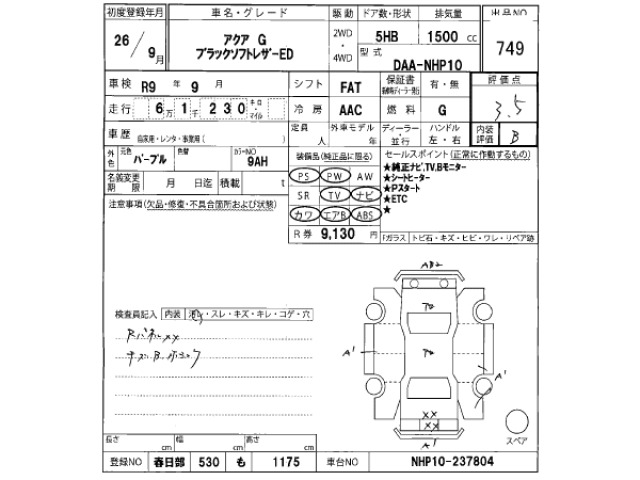 初度登録年月 車名・グレード 駆動 ドア数・形状 排気量 出品NO
26/9月 アクア G ブラックソフトレザーED 2WD・4WD 5HB 1500 cc 749
型式 DAA-NHP10
車検 R9 年 9 月 シフト FAT 保証書 有・無 評価点
走行 6万1千230 キロ・マイル 冷房 AAC 燃料 G 3.5
車歴 自家用・レンタ・事業用( ) 定員 人 外車モデル 年 ディーラー・並行 ハンドル 左・右 内装評価 B
外色 元色 パープル 色替 カラーNO 9AH 装備品(純正品に限る) セールスポイント(正常に作動するもの)
名義変更期限 月 日迄 積載 t PS PW AW ★純正ナビ,TV,Bモニター
★シートヒーター
SR TV ナビ ★Pスタート
★ETC
注意事項(欠品・修復・不具合箇所および状態) カワ エアB ABS ★
R券 9,130 円 Fガラス トビ石・キズ・ヒビ・ワレ・リペア跡
AB2
検査員記入 内装 汚レ・スレ・キズ・キレ・コゲ・穴
Rパネルxx
A1
A1
xx
xx
A1
スペア
長さ cm 幅 cm 高さ cm
登録NO 春日部 530 も 1175 車台NO NHP10-237804